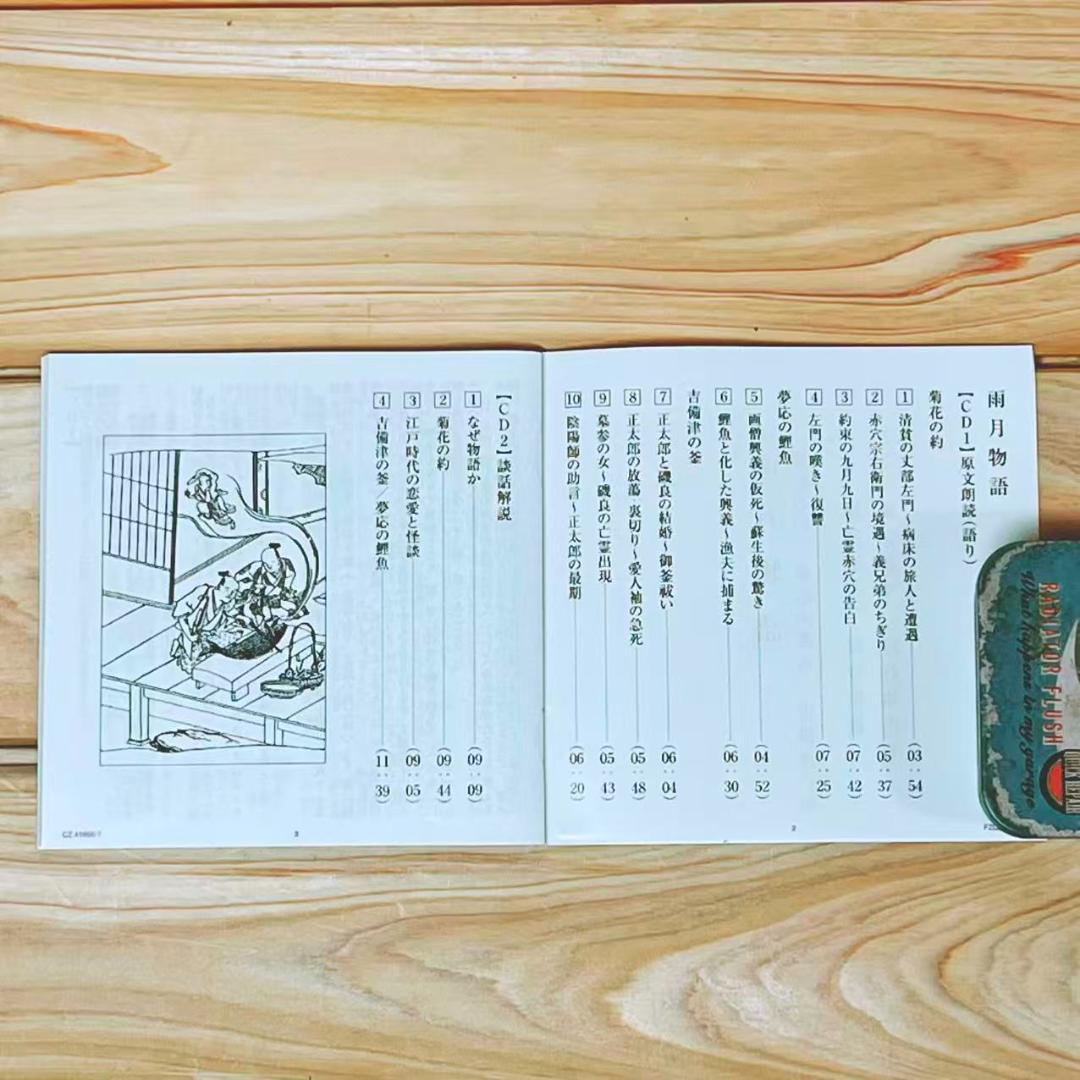 雨月物語
【CD1】原文朗読(語り)
菊花の約
1 清貧の丈部左門～病床の旅人と遭遇 (03:54)
2 赤穴宗右衛門の境遇～義兄弟のちぎり (05:37)
3 約束の九月九日～亡霊赤穴の告白 (07:42)
4 左門の嘆き～復讐 (07:25)
夢応の鯉魚
5 画僧興義の仮死～蘇生後の驚き (04:52)
6 鯉魚と化した興義～漁夫に捕まる (06:30)
吉備津の釜
7 正太郎と磯良の結婚～御釜祓い (06:04)
8 正太郎の放蕩・裏切り～愛人袖の急死 (05:48)
9 墓参の女～磯良の亡霊出現 (05:43)
10 陰陽師の助言～正太郎の最期 (06:20)
2
【CD2】談話解説
1 なぜ物語か (09:09)
2 菊花の約 (09:44)
3 江戸時代の恋愛と怪談 (09:05)
4 吉備津の釜／夢応の鯉魚 (11:39)
3
RADIATOR FLUSH
What happens in my garage